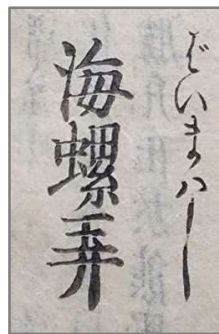 ばいまハし
海螺弄